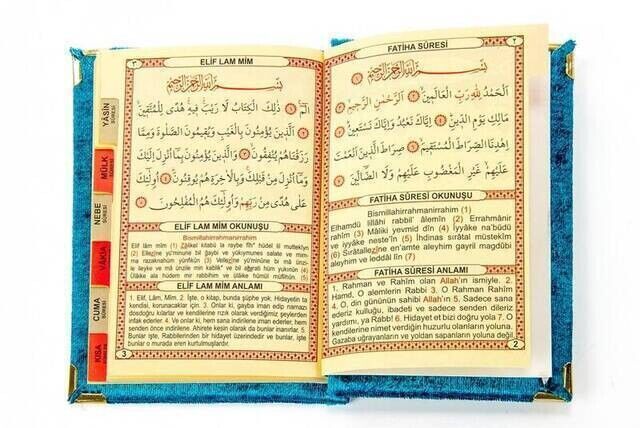 FATİHA SÛRESİ
٢
بِسْمِ اللّٰهِ الرَّحْمٰنِ الرَّحِيمِ
اَلْحَمْدُ لِلّٰهِ رَبِّ الْعَالَمِينَ اَلرَّحْمٰنِ الرَّحِيمِ
مَالِكِ يَوْمِ الدِّينِ اِيَّاكَ نَعْبُدُ وَاِيَّاكَ نَسْتَعِينُ
اِهْدِنَا الصِّرَاطَ الْمُسْتَقِيمَ صِرَاطَ الَّذِينَ اَنْعَمْتَ
عَلَيْهِمْ غَيْرِ الْمَغْضُوبِ عَلَيْهِمْ وَلَا الضَّالِّينَ
FATİHA SÛRESİ OKUNUŞU
Bismillahirrahmanirrahim (1)
Elhamdü lillâhi rabbil' âlemîn (2) Errahmânir
rahîm (3) Mâliki yevmid dîn (4) İyyâke na'büdü
ve iyyâke neste'în (5) İhdinas sırâtal müstekîm
(6) Sırâtallezîne en'amte aleyhim gayril magdûbi
aleyhim ve leddâl lîn (7)
FATİHA SÛRESİ ANLAMI
1. Rahman ve Rahim olan Allah'ın ismiyle. 2.
Hamd, O alemlerin Rabbi 3. O Rahman Rahim
4. O, din gününün sahibi Allah'ın 5. Sadece sana
ederiz kulluğu, ibadeti ve sadece senden dileriz
yardımı, ya Rabb! 6. Hidayet et bizi doğru yola 7. O
kendilerine nimet verdiğin huzurlu olanların yoluna.
Gazaba uğrayanların ve yoldan sapanların yoluna değil.
2
ELİF LAM MİM
٣
بِسْمِ اللّٰهِ الرَّحْمٰنِ الرَّحِيمِ
الٓمٓ ذٰلِكَ الْكِتَابُ لَا رَيْبَ فِيهِ هُدًى لِلْمُتَّقِينَ
اَلَّذِينَ يُؤْمِنُونَ بِالْغَيْبِ وَيُقِيمُونَ الصَّلٰوةَ وَمِمَّا
رَزَقْنَاهُمْ يُنْفِقُونَ وَالَّذِينَ يُؤْمِنُونَ بِمَا اُنْزِلَ اِلَيْكَ
وَمَا اُنْزِلَ مِنْ قَبْلِكَ وَبِالْاٰخِرَةِ هُمْ يُوقِنُونَ اُولٰئِكَ
عَلٰى هُدًى مِنْ رَبِّهِمْ وَاُولٰئِكَ هُمُ الْمُفْلِحُونَ
ELİF LAM MİM OKUNUŞU
Bismillahirrahmanirrahim
Elif lâm mîm (1) Zâlikel kitabü la raybe fîh* hüdel lil muttekîyn
(2) Ellezîne yü'minune bil ğaybi ve yükıymunes salate ve mim-
ma razaknahüm yünfikun (3) Vellezîne yü'minune bi mâ ünzi-
le ileyke ve mâ ünzile min kablik* ve bil ahırati hüm yûkınûn (4)
Ülâike ala hüdem mir rabbihim ve ülâike hümül müflihun (5)
ELİF LAM MİM ANLAMI
1. Elif, Lâm, Mim. 2. İşte, o kitap, bunda şüphe yok. Hidayetin ta
kendisi, korunacaklar için. 3. Onlar ki, gayba iman edip namazı
dosdoğru kılarlar ve kendilerine rızık olarak verdiğimiz şeylerden
infak ederler. 4. Ve onlar ki, hem sana indirilene iman ederler, hem
senden önce indirilene. Ahirete kesin olarak da bunlar inanırlar. 5.
Bunlar işte, Rabbilerinden bir hidayet üzerindedir ve bunlar, işte
bunlar o murada eren kurtulmuşlardır.
3
YÂSİN
SÛRESİ
MÜLK
NEBE
SÛRESİ
VAKIA
CUMA
SÛRESİ
KISA